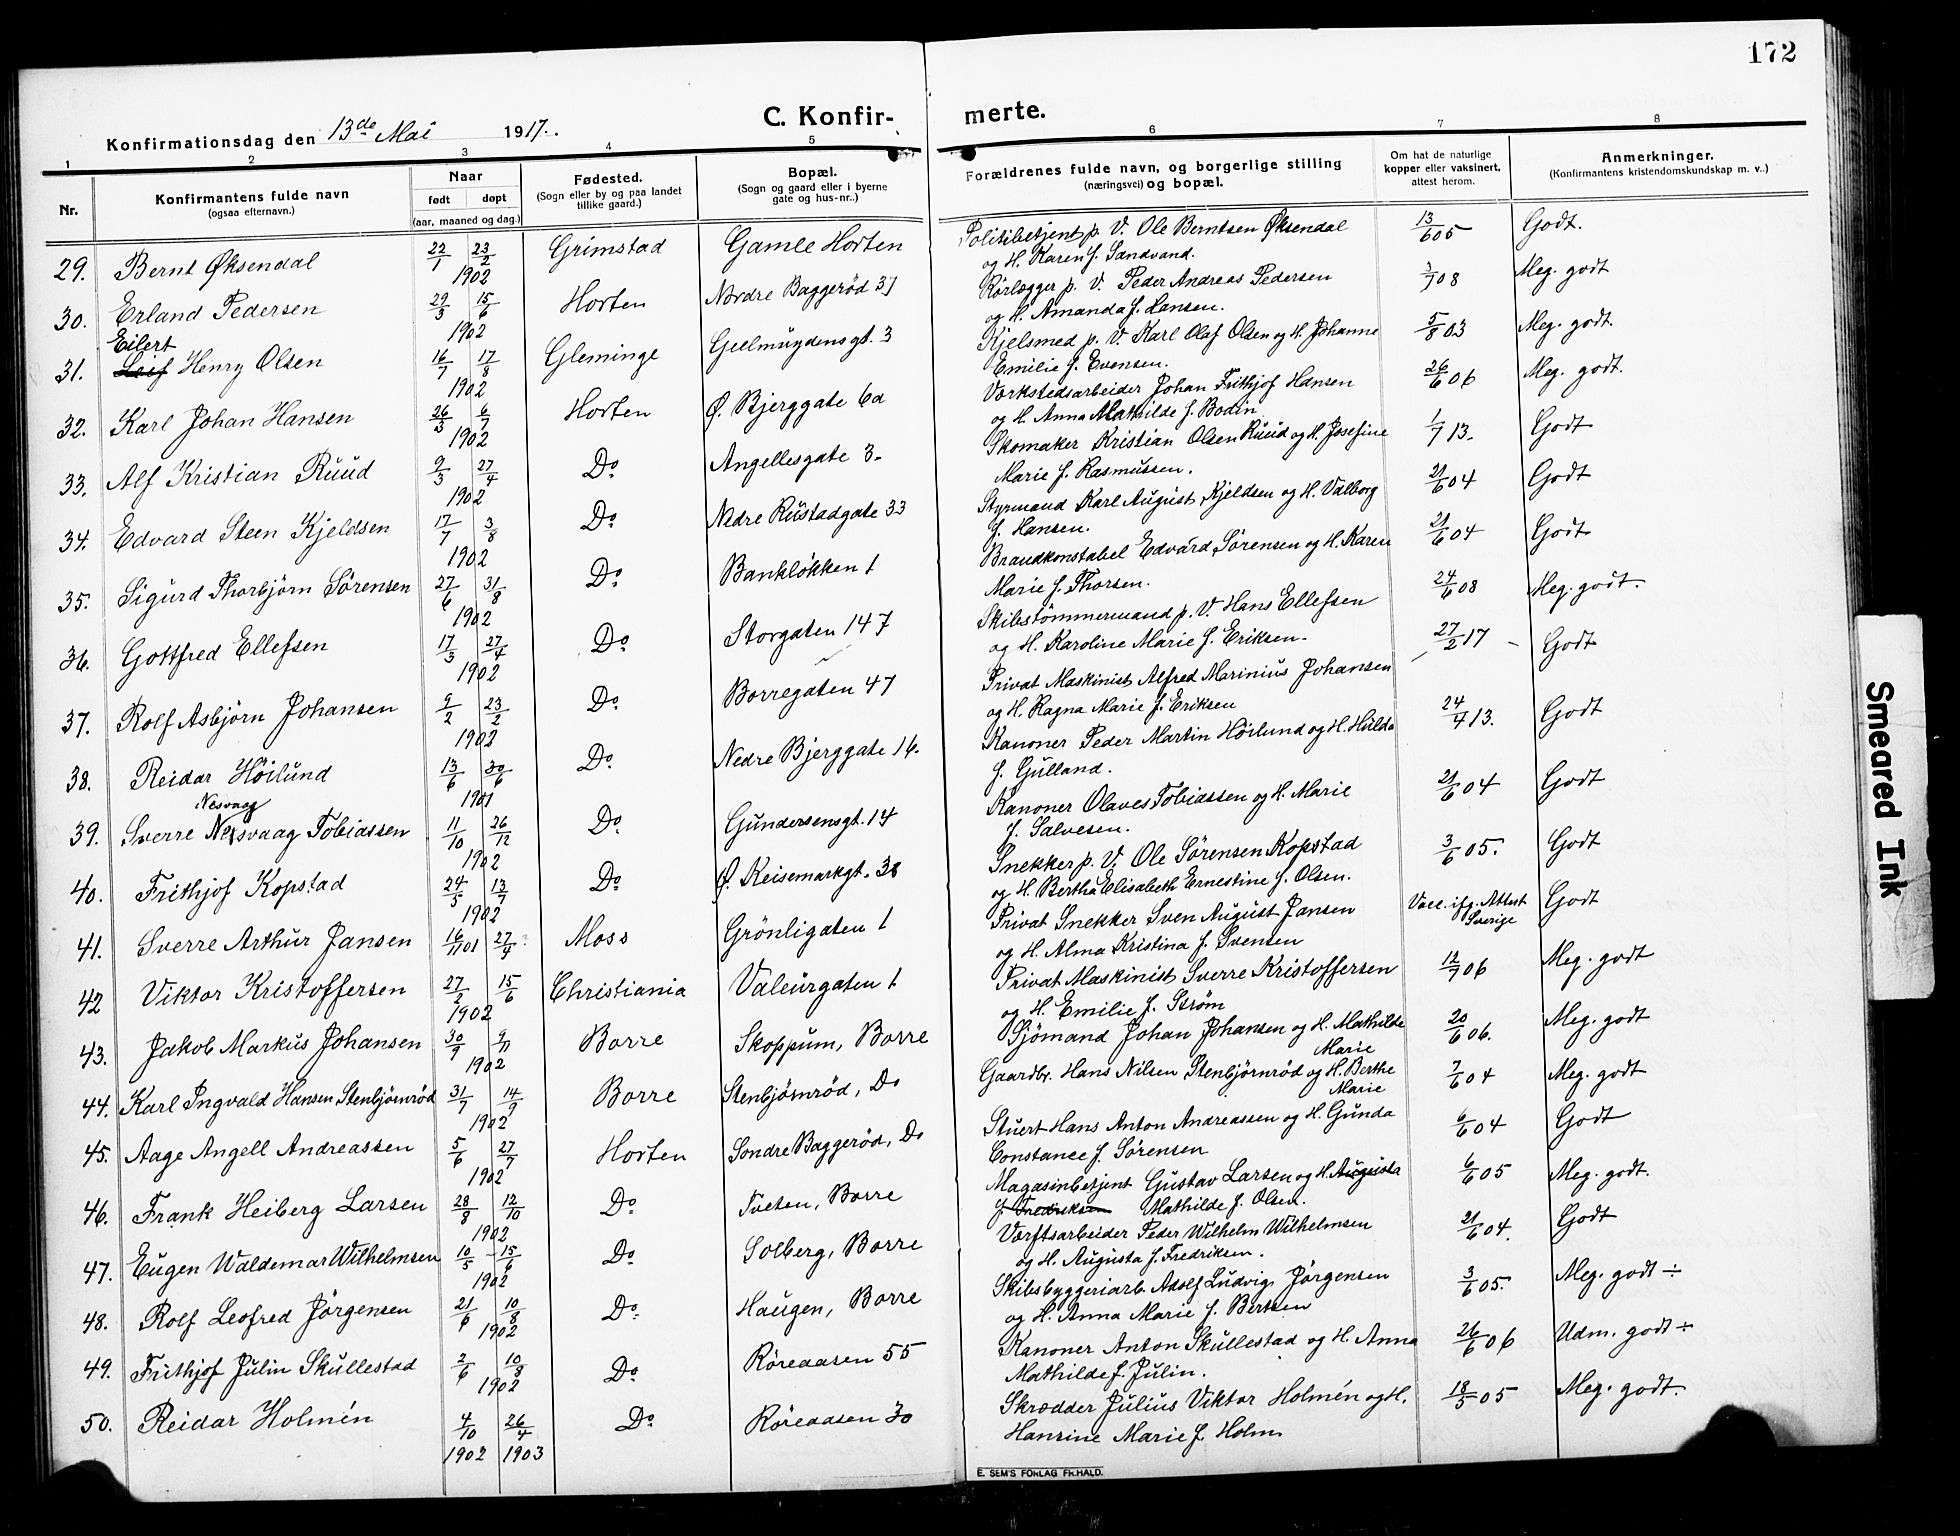 172
C. Konfirmerte.
Konfirmationsdag den 13de Mai 1917.
1 2 3 4 5 6 7 8
Nr.
Konfirmantens fulde navn
(ogsaa efternavn.)
Naar
født døpt
(aar, maaned og dag.)
Fødested.
(Sogn eller by og paa landet
tillike gaard.)
Bopæl.
(Sogn og gaard eller i byerne
gate og hus-nr..)
Forældrenes fulde navn, og borgerlige stilling
(næringsvei) og bopæl.
Om hat de naturlige
kopper eller vaksinert,
attest herom.
Anmerkninger.
(Konfirmantens kristendomskundskap m. v..)
29. Bernt Øksendal 22/1 23/2 1902 Grimstad Gamle Horten Politibetjent p. V. Ole Berntsen Øksendal 13/6 05 Godt.
og H. Karen f. Sandvand.
30. Erland Pedersen 29/3 15/6 1902 Horten Nordre Baggerød 37 Rørlægger p. V. Peder Andreas Pedersen /7 08 Meg. godt
og H. Amanda f. Hansen.
Eilert
31. Leif Henry Olsen 16/7 17/8 1902 Gleminge Geelmuydensgt. 3 Kjelsmed p. V. Karl Olaf Olsen og H. Johanne 5/8 03 Meg. godt.
Emilie f. Evensen.
32. Karl Johan Hansen 26/3 6/7 1902 Horten Ø. Bjerggate 6a Værkstedsarbeider Johan Frithjof Hansen 26/6 06 Meg. godt.
og H. Anna Mathilde f. Bodin
33. Alf Kristian Ruud 9/3 27/4 1902 Do Angellesgate 3. Skomaker Kristian Olsen Ruud og H. Josefine 1/7 13. Godt
Marie f. Rasmussen.
34. Edvard Steen Kjeldsen 17/7 3/8 1902 Do Nedre Rustadgate 33 Styrmand Karl August Kjeldsen og H. Valborg 21/6 04 Godt
f. Hansen.
35. Sigurd Thorbjörn Sörensen 27/6 31/8 1902 Do Bankløkken 1 Brandkonstabel Edvard Sørensen og H. Karen 21/6 04 Godt
Marie f. Thorsen.
36. Gottfred Ellefsen 17/3 27/4 1902 Do Storgaten 147 Skibstömmermand p. V. Hans Ellefsen 24/6 08 Meg. godt.
og H. Karoline Marie f. Eriksen.
37. Rolf Asbjörn Johansen 9/2 23/2 1902 Do Borregaten 47 Privat Maskinist Alfred Marinius Johansen 27/2 17 Godt
og H. Ragna Marie f. Eriksen
38. Reidar Höilund 13/6 30/6 1901 Do Nedre Bjerggate 16. Kanoner Peder Martin Höilund og H. Hulda 24/4 13. Godt
f. Gulland.
Nesvaag
39. Sverre Nesvaag Tobiassen 11/10 26/12 1902 Do Gundersensgt. 14 Kanoner Olaves Tobiassen og H. Marie 21/6 04 Godt
f. Salvesen.
40. Frithjof Kopstad 24/5 13/7 1902 Do Ø. Keisemarkgt. 38 Snekker p. V. Ole Sørensen Kopstad 3/6 05. Godt
og H. Bertha Elisabeth Ernestine f. Olsen.
41. Sverre Arthur Jansen 16/11 01 27/4 Moss Grönligaten 1 Privat Snekker Sven August Jansen Vacc. ifg. Attest Sverige Godt
og H. Alma Kristina f. Svensen
42 Viktor Kristoffersen 27/2 15/6 1902 Christiania Valeurgaten 1 Privat Maskinist Sverre Kristoffersen 12/7 06 Meg. godt
og H. Emilie f. Strøm
43. Jakob Markus Johansen 30/9 9/11 1902 Borre Skoppum, Borre Sjömand Johan Johansen og H. Mathilde 20/6 06. Meg. godt
Marie
44. Karl Ingvald Hansen Stenbjörnröd 31/7 14/9 1902 Borre Stenbjørnrød, Do Gaardbr. Hans Nilsen Stenbjørnrød og H. Berthe 7/6 04 Meg. godt
Marie
45. Aage Angell Andreassen 5/6 27/7 1902 Horten Söndre Baggerød, Do Stuert Hans Anton Andreassen og H. Gunda 6/6 04 Godt
Constance f. Sørensen
46. Frank Heiberg Larsen 28/8 12/10 1902 Do Tveten, Borre Magasinbetjent Gustav Larsen og H. Augusta 6/6 05 Meg. godt.
f. Fredriksen Mathilde f. Olsen.
47. Eugen Waldemar Wilhelmsen 10/5 15/6 1902 Do Solberg, Borre Værftsarbeider Peder Wilhelm Wilhelmsen 21/6 04. Godt
og H. Augusta f. Fredriksen.
48. Rolf Leofred Jörgensen 21/6 10/8 1902 Do Haugen, Borre Skibsbyggeriarb. Adolf Ludvig Jörgensen 3/6 05. Meg. godt ÷
og H. Anna Marie f. Bertsen
49. Frithjof Julin Skullestad 2/6 10/8 1902 Do Röreaasen 55 Kanoner Anton Skullestad og H. Anna 26/6 06 Udm. godt ÷
Mathilde f. Julin.
50. Reidar Holmén 4/10 1902 26/4 1903 Do Röreaasen 30 Skrædder Julius Viktor Holmén og H. 18/5 05 Meg. godt.
Hansine Marie f. Holm
E. SEM'S FORLAG FR.HALD.
Smeared Ink